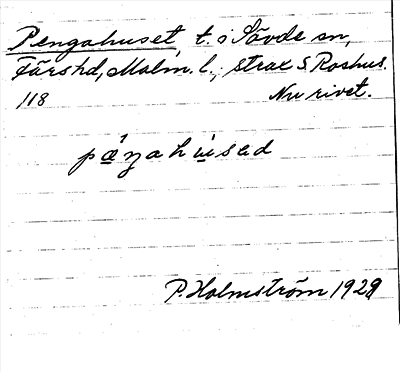 Pengahuset, t. i Sövde sn,
Färs hd, Malm. l., strax S. Roshus.
118 Nu rivet.
päŋahu̇sad
P. Holmström 1929